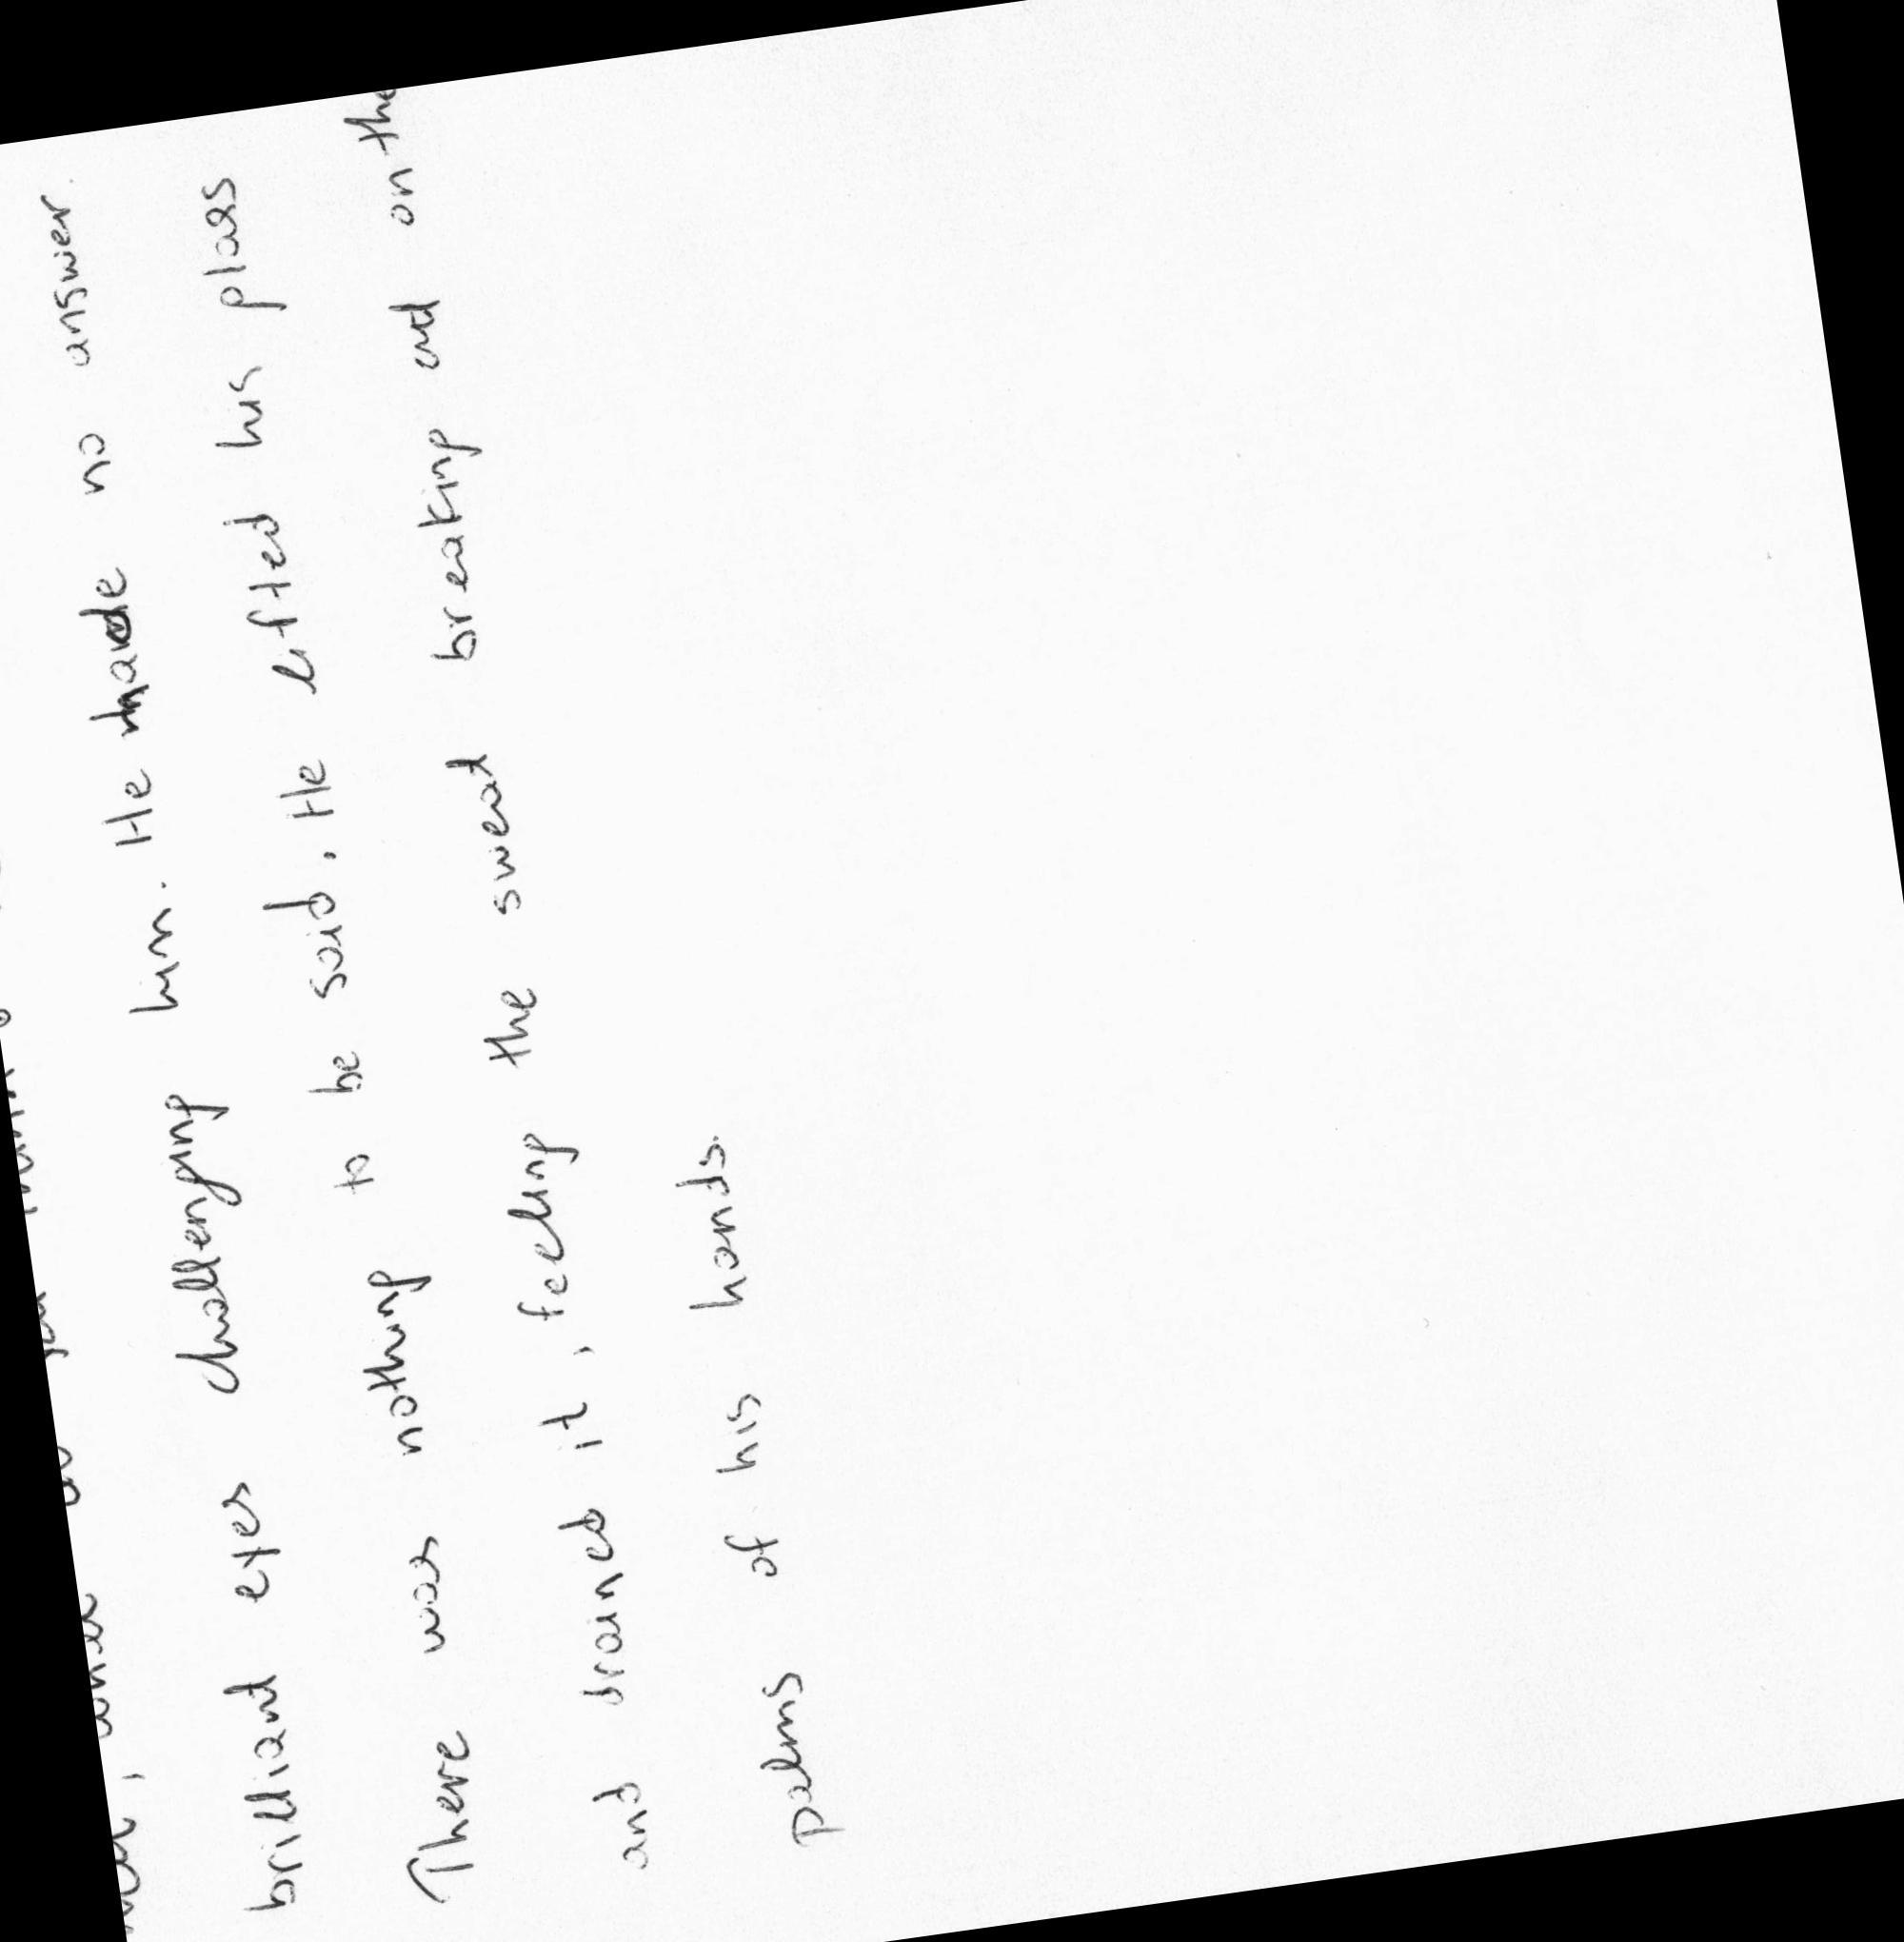 brilliant eyes challenging him. He made no answer.
There was nothing to be said. He lifted his glass
and drained it, feeling the sweat breaking out on the
palms of his hands.